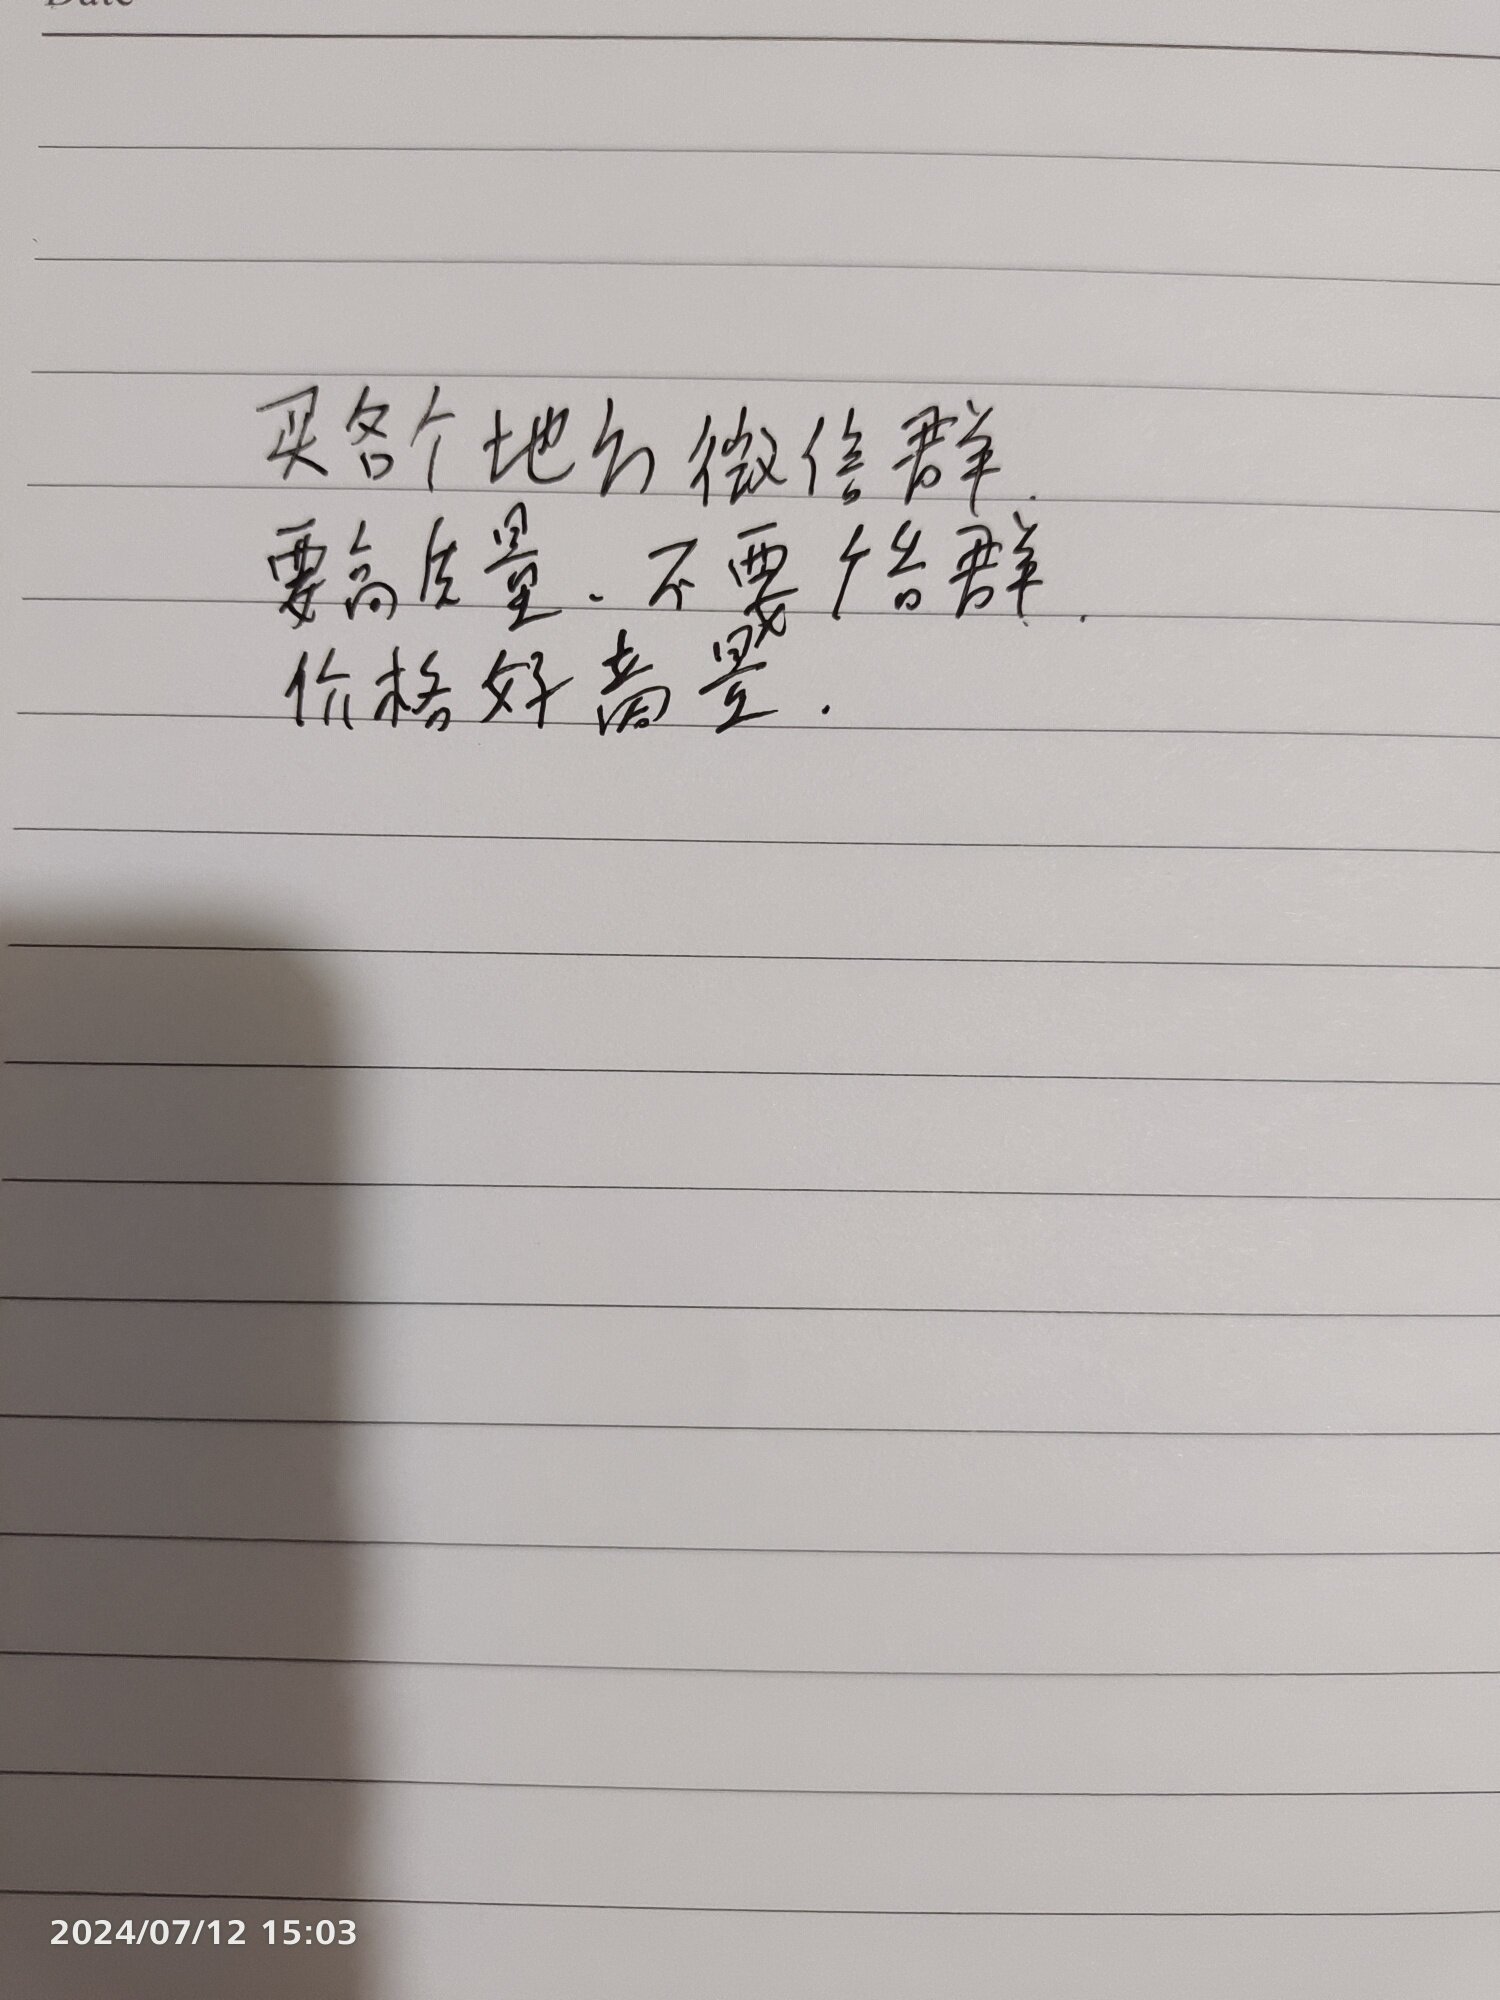 Date
买各个地方微信群.
要高质量.不要僵群.
价格好商量.
2024/07/12 15:03